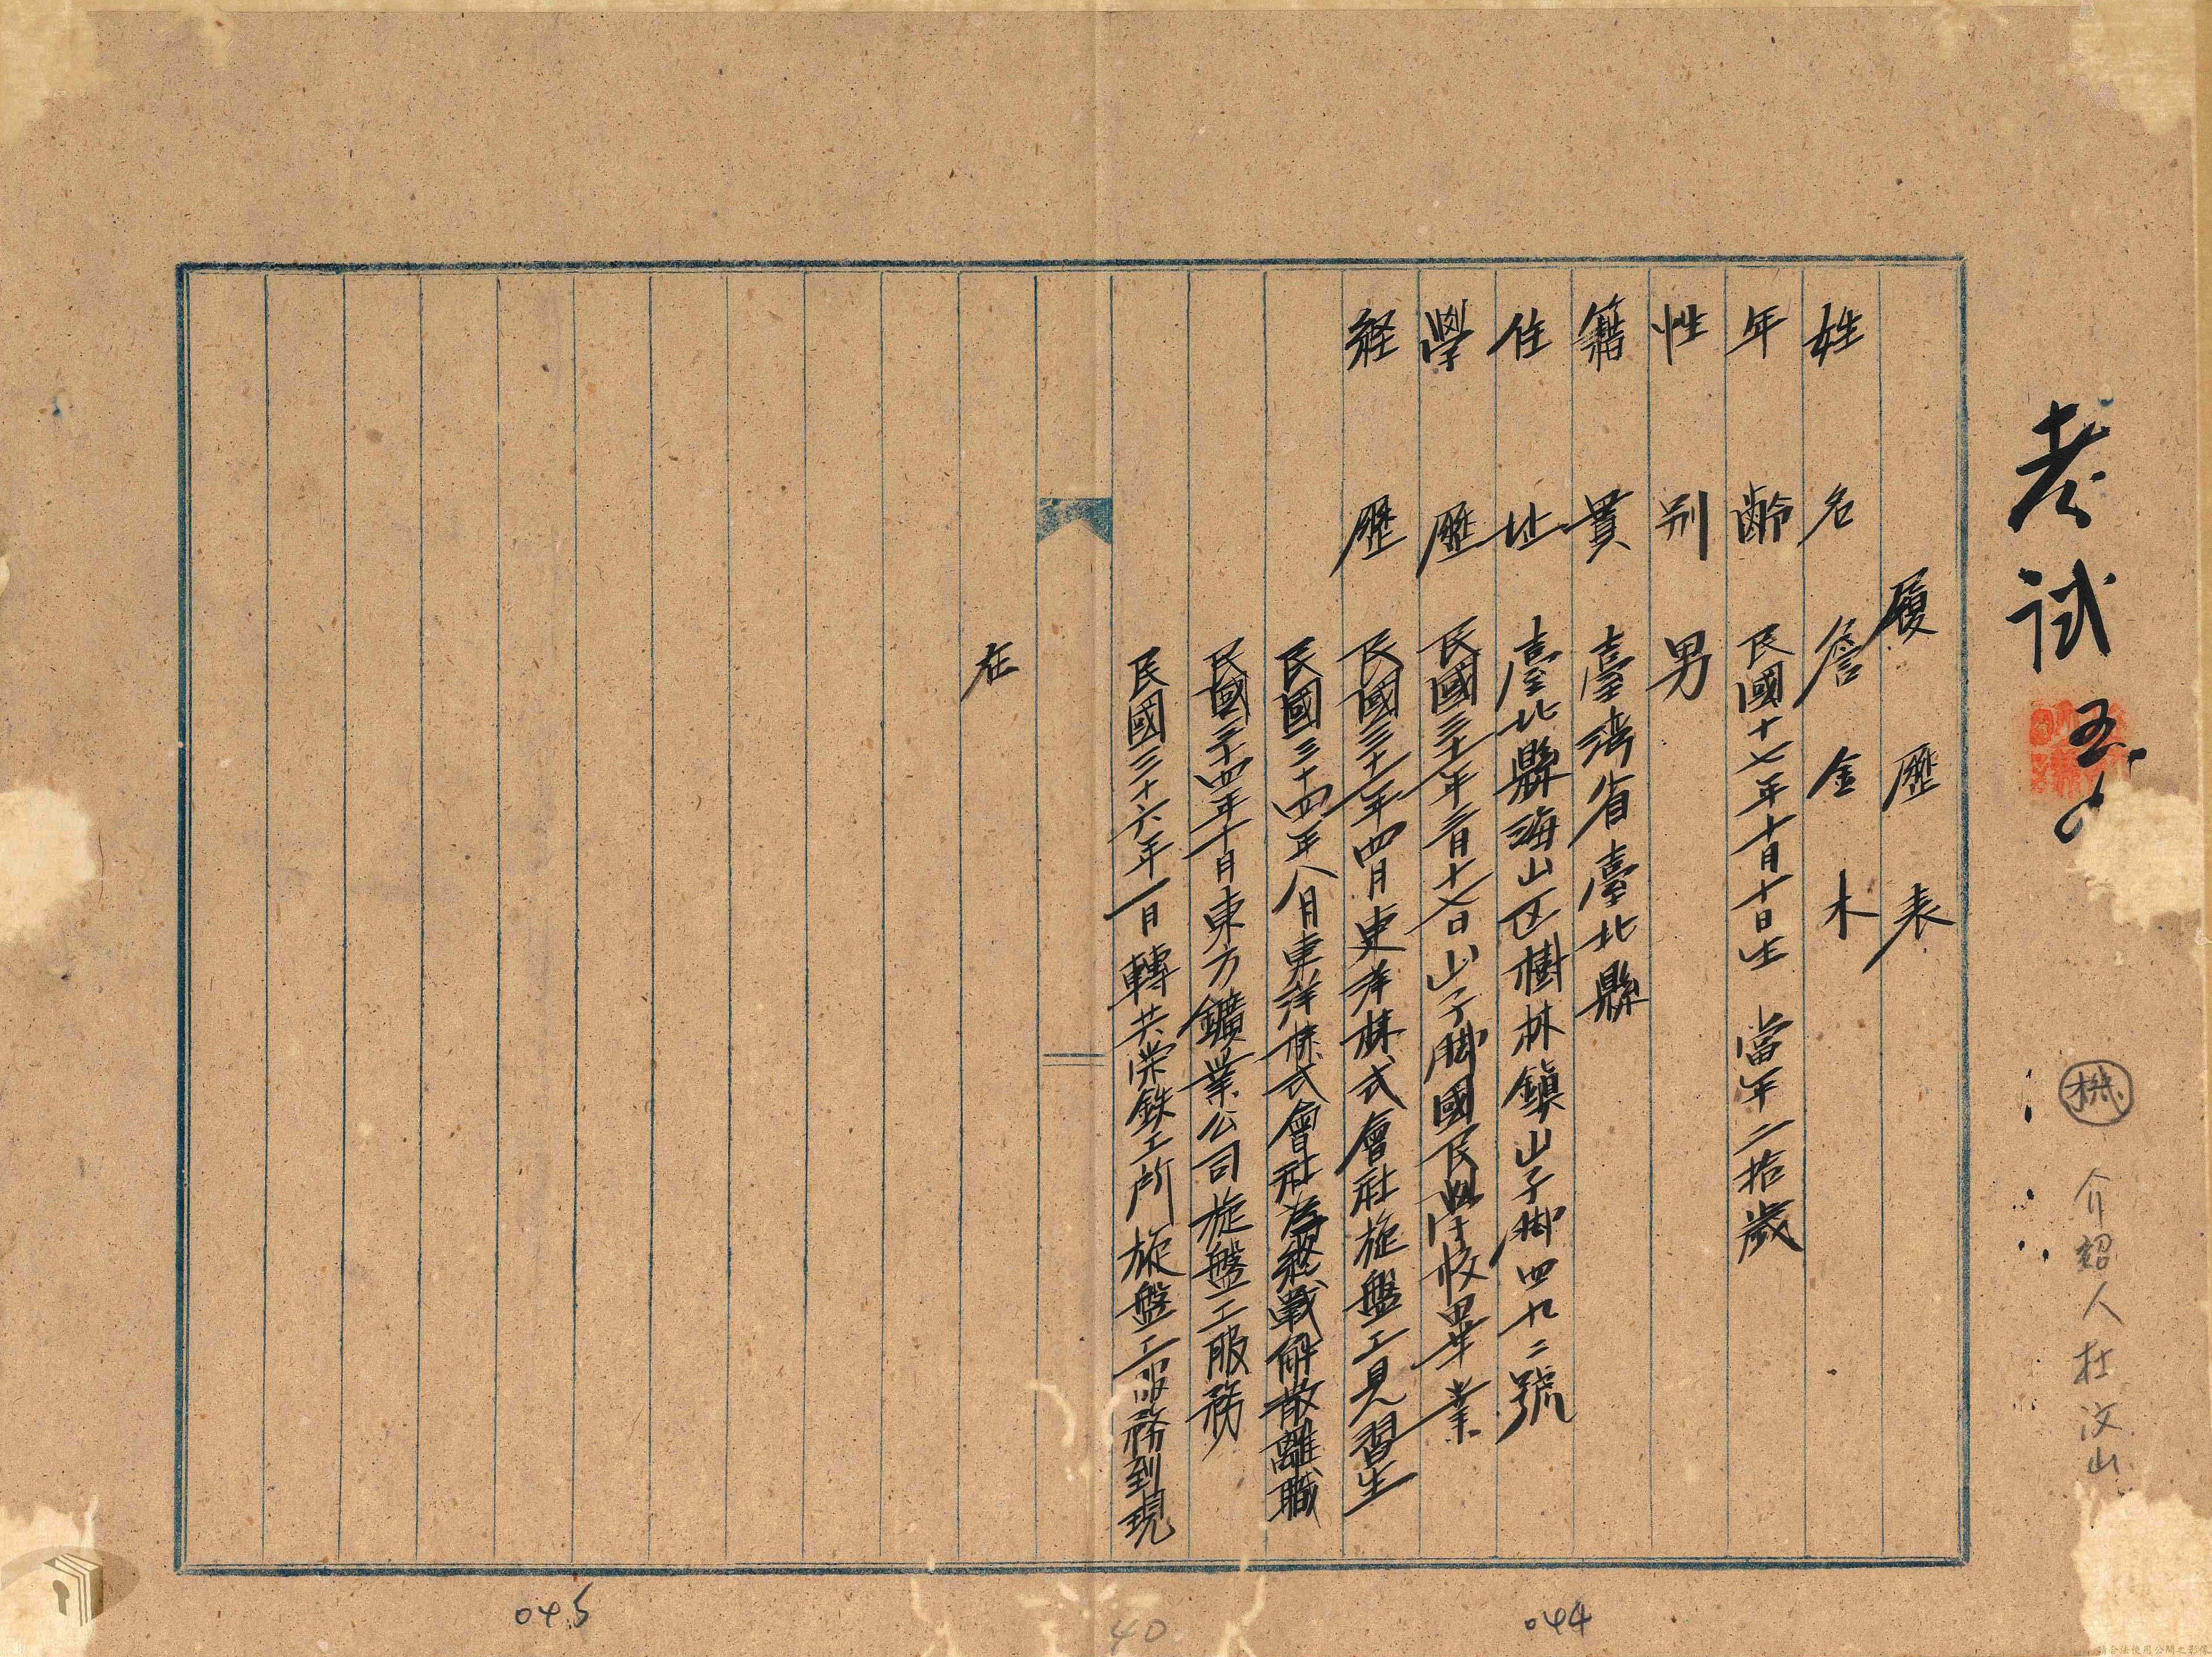 考試
機
介紹人杜汶山
履歷表
姓名 詹金木
年齡 民國十七年十月十日生 當年二拾歲
性別 男
籍貫 臺湾省臺北縣
住址 臺北縣海山区樹林鎮山子脚四九二號
學歷 民國三十一年三月十七日山子脚國民學校畢業
経歷 民國三十一年四月東洋株式會社旋盤工見習生
民國三十四年八月東洋株式會社為終戰解散離職
民國三十四年十月東方鑛業公司旋盤工服務
民國三十六年一月轉共栄鉄工所旋盤工服務到現
在
044
40
045
請合法使用公開之影像